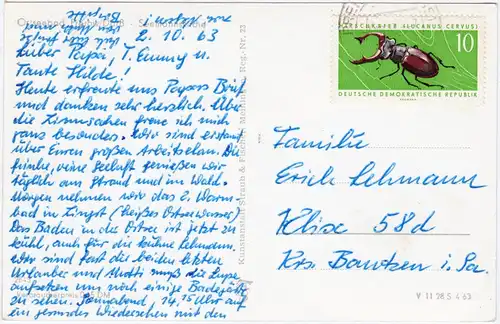 2.10.63
Lieber Papa, T. Emmy u.
Tante Hilde!
Heute erfreute uns Papas Brief
und danken sehr herzlich. Über
die Zinnsachen freue ich mich
ganz besonders. Wir sind erstaunt
über Euren großen Arbeitselan. Die
frische, reine Seeluft genießen wir
täglich am Strand und im Wald.
Morgen nehmen wir das 2. Warm-
bad in Zingst (heißes Ostseewasser)
Das Baden in der Ostsee ist jetzt zu
kühl, auch für die kühne Lehmann.
Wir sind fast die beiden letzten
Urlauber und Mutti muß die Lupe
aufsetzen um noch einige Badegäste
zu sehen. Sonnabend, 14,15 Uhr auf
ein gesundes Wiedersehen mit den
Kunstanstalt Straub & Fischer, Meiningen Reg. Nr. 23
HIRSCHKÄFER (LUCANUS CERVUS)
10
DEUTSCHE DEMOKRATISCHE REPUBLIK
Familie
Erich Lehmann
Klix 58d
Krs. Bautzen i. Sa.
V 11 28 S 4 63